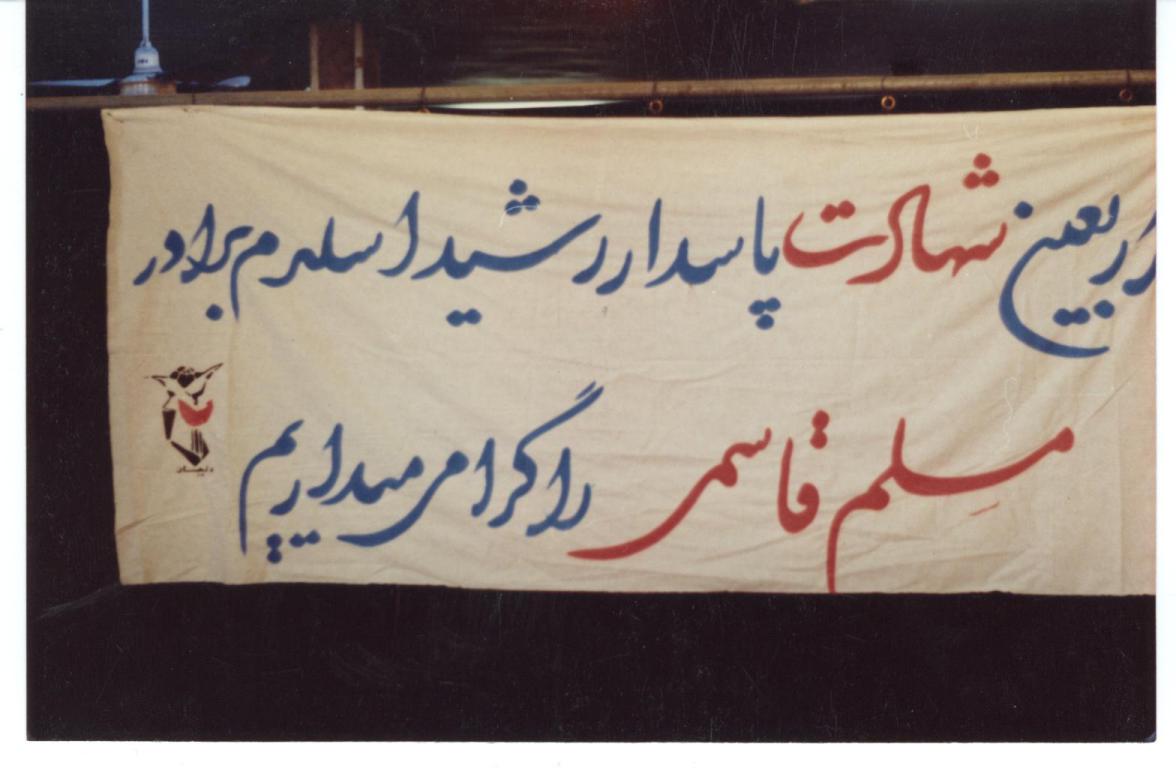 اربعین شهادت پاسدار رشید اسلام برادر
مسلم قاسمی را گرامی میداریم